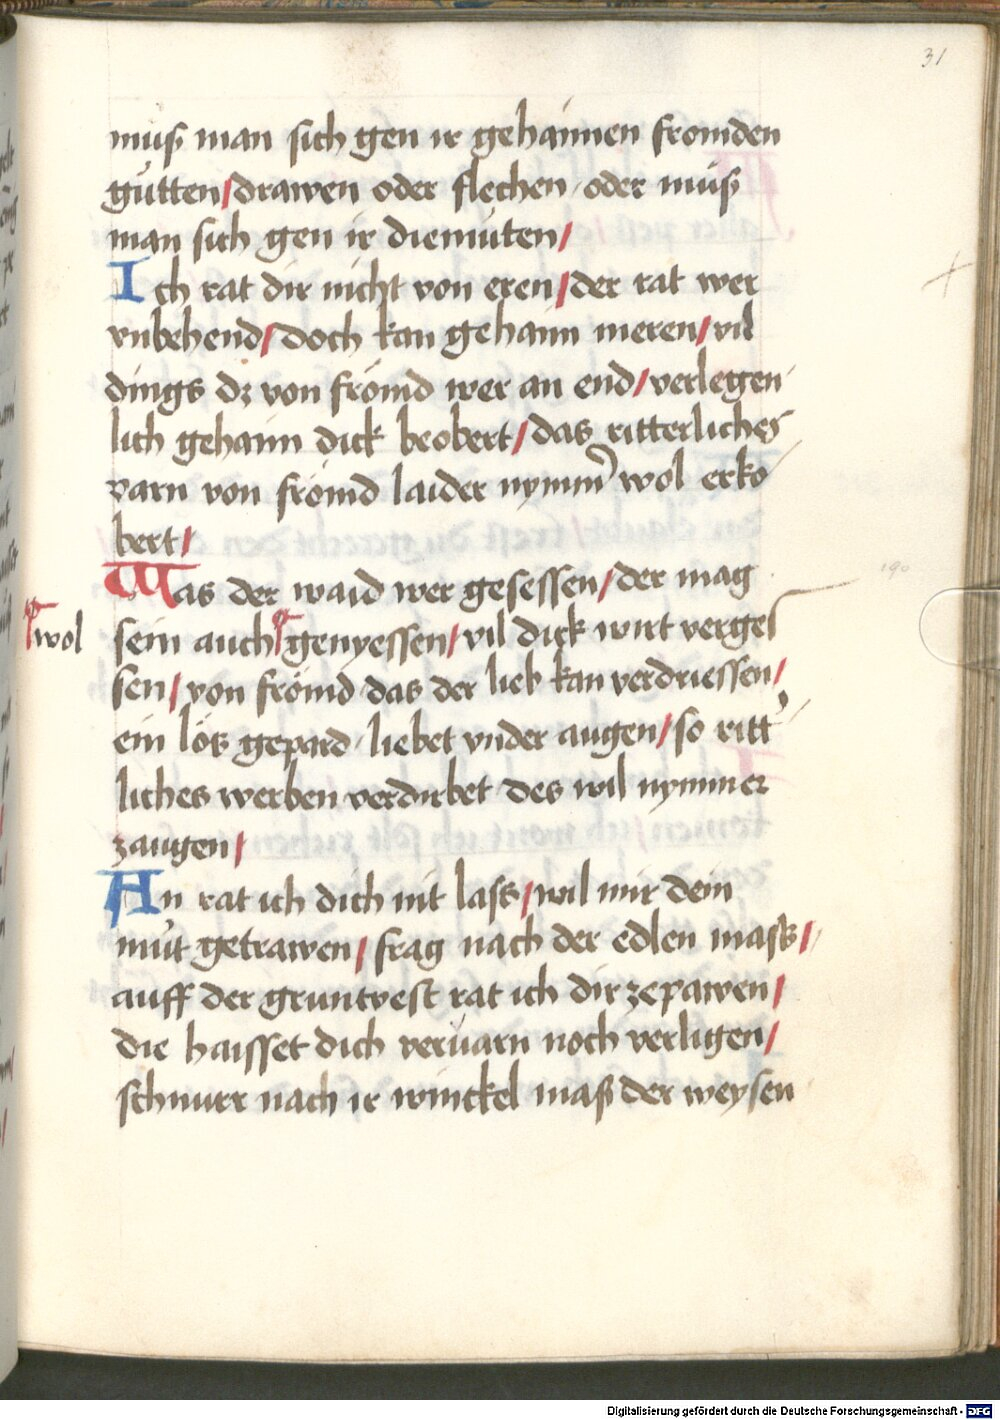 31
muß man sich gen ir gehaimen fromden
gůtten / drawen oder flechen oder můß
man sich gen ir diemůten /
Ich rat dir nicht von eren / der rat wer
vnbehend / doch kan gehaim meren / vil
dings dz von frömd wer an end / verlegen
lich gehaim dick beobert / das ritterliches
varn von frömd laider nymm̉ wol erko
bert /
Was der waid wer gesessen / der mag
wol
sein auch genyessen / vil dick wirt verges
190
sen / von frömd das der lieb kan verdriessen /
ein lös gepard liebet vnder augen / so ritt̉
liches werben verdirbet des wil nymmer
zaugen /
An rat ich dich nit lass / wil mir dein
můt getrawen / frag nach der edlen mass /
auff der gruntvest rat ich dir zepawen /
die haisset dich veruarn noch verligen /
schnurr nach ir winckel maß der weysen
Digitalisierung gefördert durch die Deutsche Forschungsgemeinschaft - DFG